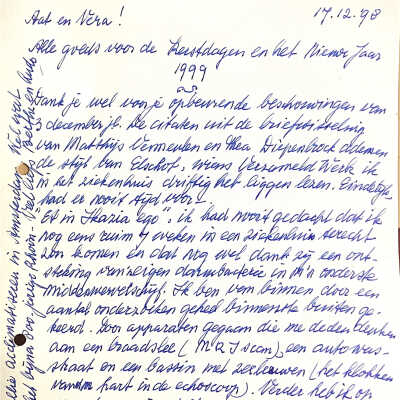 Aat en Vera!
17.12.98
Alle goeds voor de Kerstdagen en het Nieuwe Jaar
1999
Dank je wel voor je opbeurende beschouwingen van
december jl. De citaten uit de briefwisseling
van Matthijs Vermeulen en Thea Diepenbrock ademen
de stijl van Elschot, wiens Verzameld Werk ik
in het ziekenhuis driftig het liggen lezen. Eindelijk
had er nooit tijd voor.
"Et in Ikazia ego". Ik had nooit gedacht dat ik
nog eens ruim 7 weken in een ziekenhuis terecht
zou komen en dat nog wel dank zij een ont-
steking van eigen darmbacterie in m'n onderste
middenwervelschijf. Ik ben van binnen door een
aantal onderzoeken geheel binnenste buiten ge-
keerd. Door apparaten gegaan die me deden denken
aan een braadslee (MRI scan), een autowas-
straat en een bassin met zeeleeuwen (het klokken
van m'n hart in de echoscoop). Verder heb ik op
acclimatiseren in Amsterdam